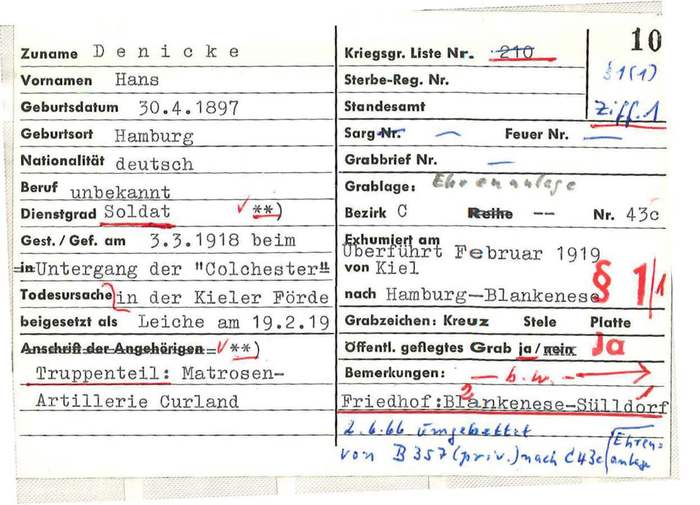 Zuname Denicke
Vornamen Hans
Geburtsdatum 30.4.1897
Geburtsort Hamburg
Nationalität deutsch
Beruf unbekannt
Dienstgrad Soldat **)
Gest./Gef. am 3.3.1918 beim
in Untergang der "Colchester"
Todesursache in der Kieler Förde
beigesetzt als Leiche am 19.2.19
Anschrift der Angehörigen = **)
Truppenteil: Matrosen-
Artillerie Curland
10
Kriegsgr. Liste Nr. 210
§1(1)
Sterbe-Reg. Nr.
Standesamt
Ziff. 1
Sarg-Nr. — Feuer Nr. —
Grabbrief Nr. —
Grablage: Ehrenanlage
Bezirk C Reihe -- Nr. 43c
Exhumiert am
Überführt Februar 1919
von Kiel
nach Hamburg-Blankenese
§ 1/1
Grabzeichen: Kreuz Stele Platte
Öffentl. gepflegtes Grab ja/nein Ja
Bemerkungen: — b.w. —
Friedhof: Blankenese-Sülldorf
2 1
2.6.66 umgebettet
von B 357 (priv.) nach C43c (Ehren=
anlage